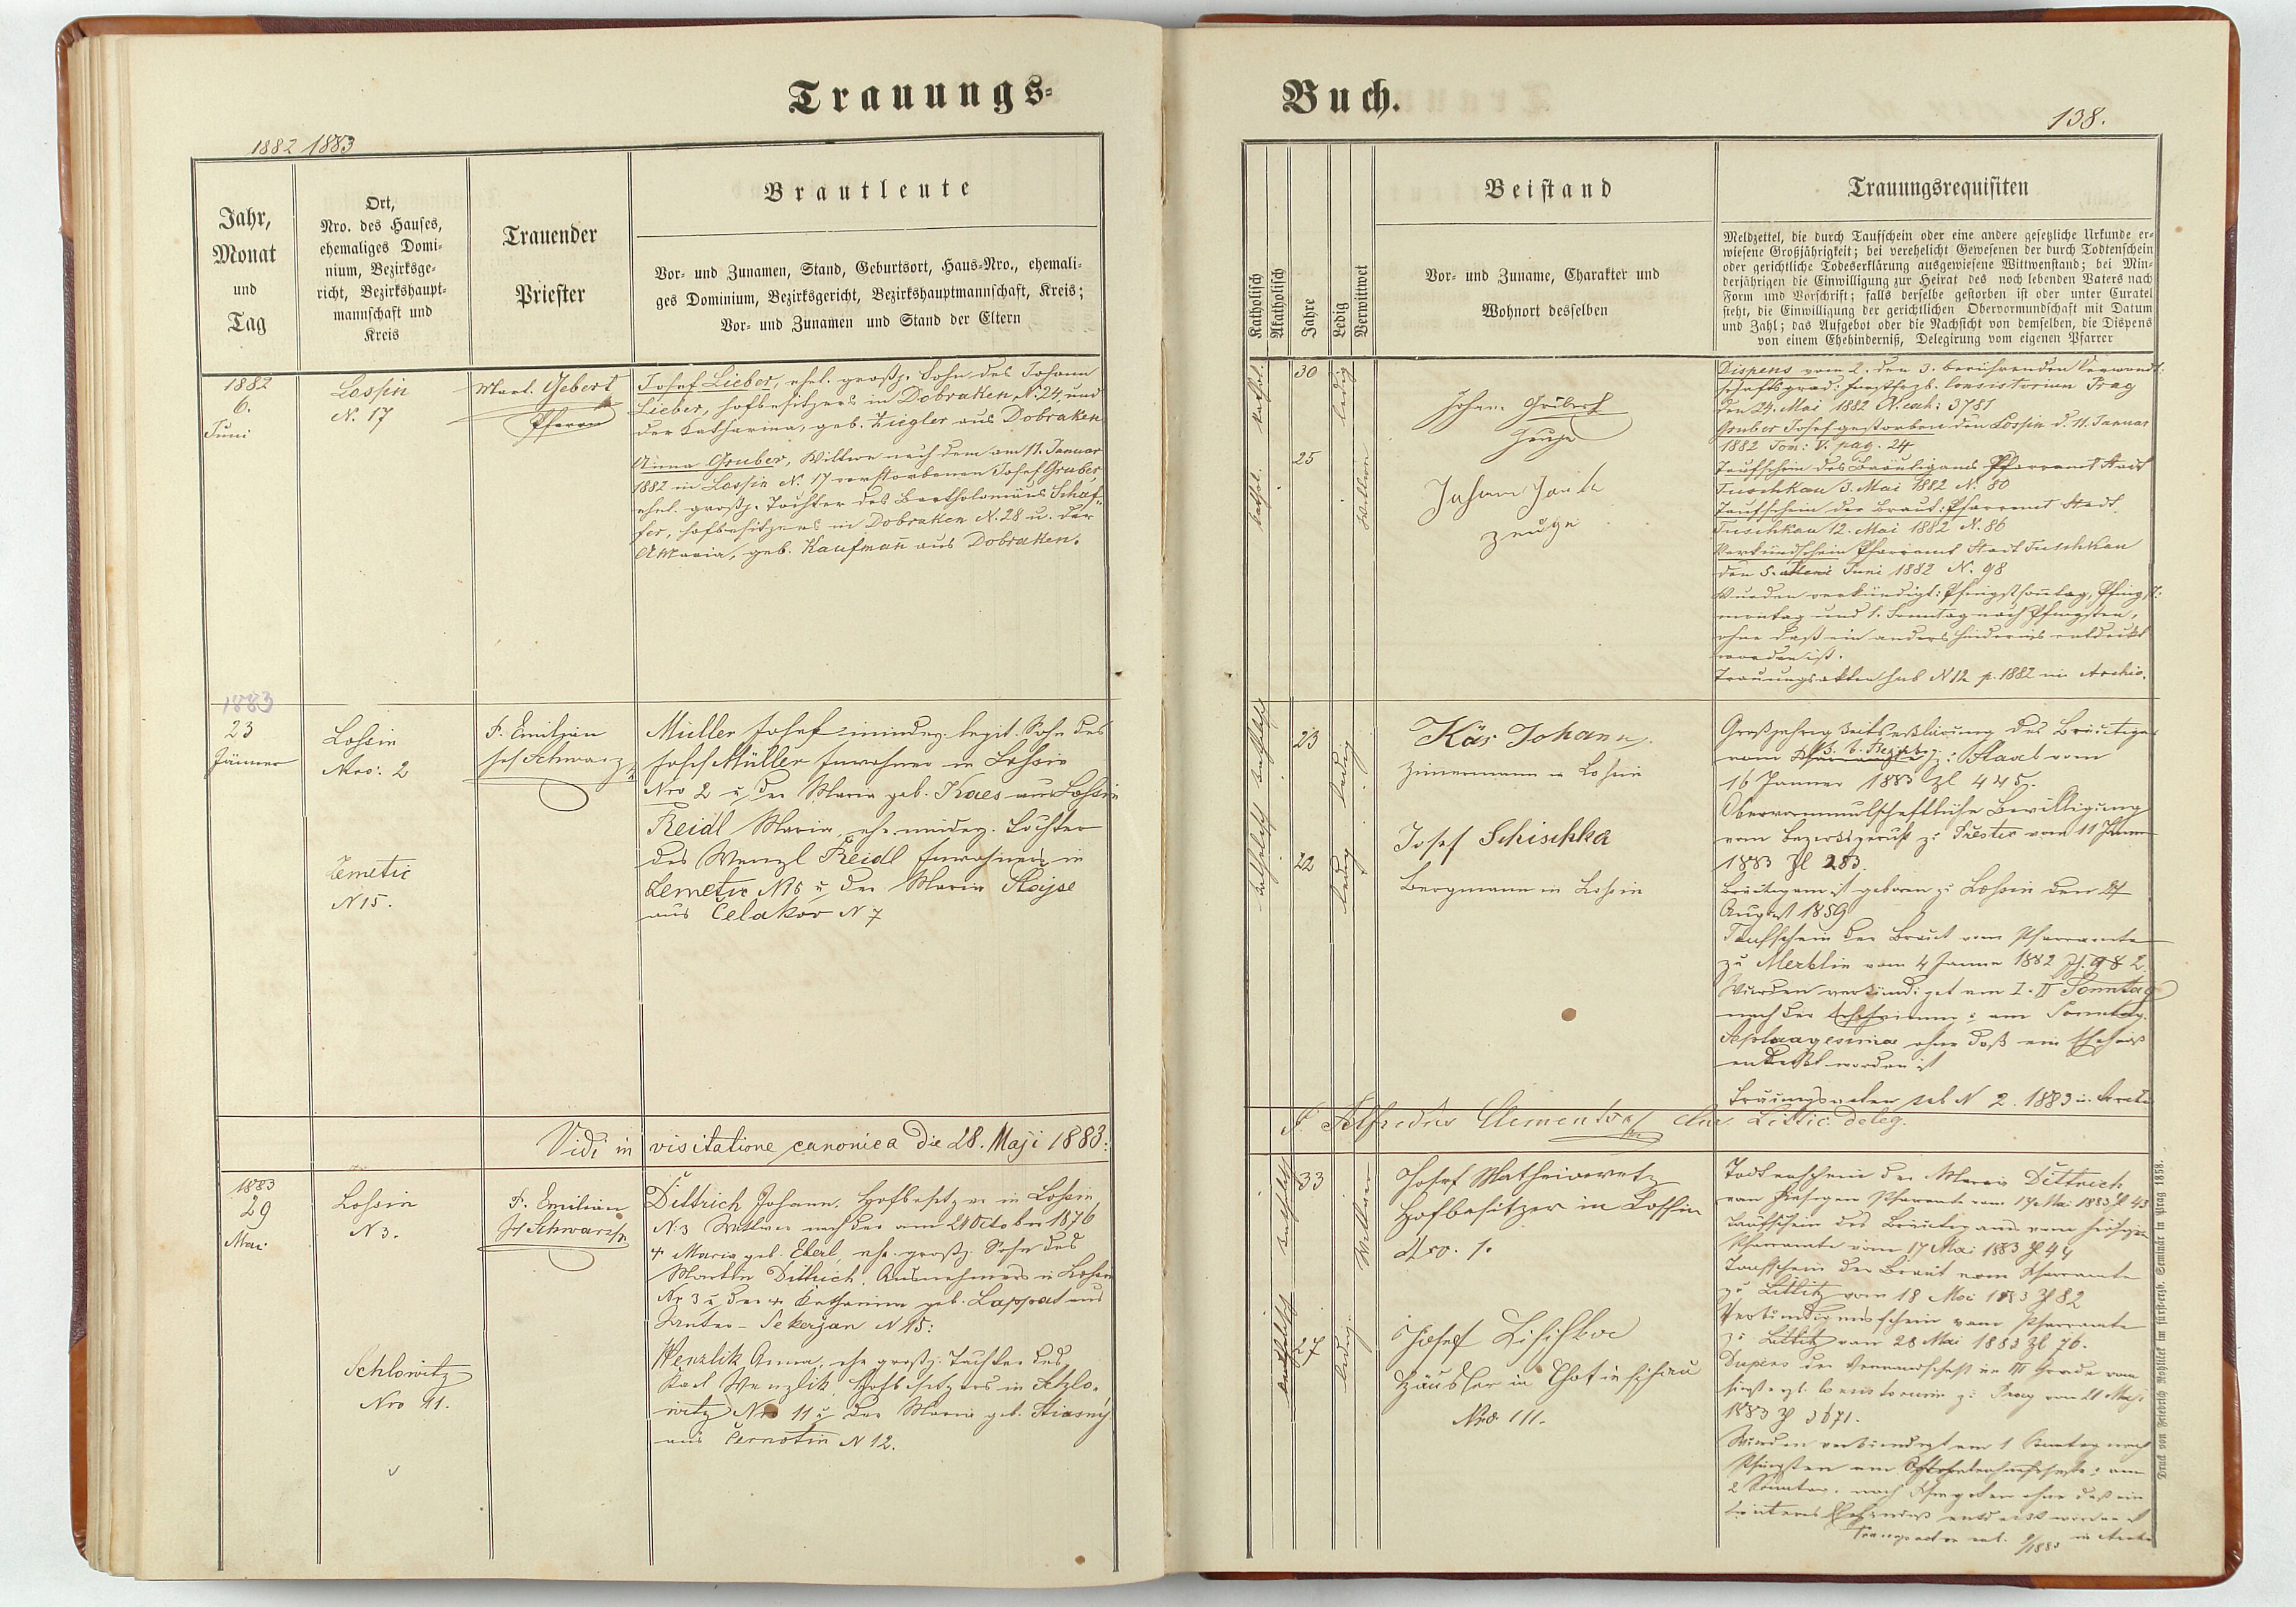 Trauungs-
1882 1883
Jahr,
Monat
und
Tag
Ort,
Nro. des Hauses,
ehemaliges Domi-
nium, Bezirksge-
richt, Bezirkshaupt-
mannschaft und
Kreis
Trauender
Priester
Brautleute
Vor- und Zunamen, Stand, Geburtsort, Haus-Nro., ehemali-
ges Dominium, Bezirksgericht, Bezirkshauptmannschaft, Kreis;
Vor- und Zunamen und Stand der Eltern
1882
6.
Juni
Lossin
N. 17
Gebert
Pfarrer
Josef Lieber, ehel. großj. Sohn des Johann
Lieber, Hofbesitzers in Dobraken N. 24, und
der Katharina, geb. Ziegler aus Dobraken
Anna Gruber, Wittwe nach dem am 11. Januar
1882 in Lossin N. 17 verstorbenen Josef Gruber,
ehel. großj. Tochter des Bartholomäus Schäf-
fer, Hofbesitzers in Dobraken N. 28 u. der
Maria, geb. Kaufmañ aus Dobraken.
1883
23
Jänner
Lossin
Nro. 2
Zemetic
N 15.
P. Emilian
Jos Schwarz
Müller Josef minderj. legit. Sohn des
Josef Müller Inwohner in Lossin
Nro 2 u. der Maria geb. Kaes aus Lossin
Reidl Maria, ehe. minderj. Tochter
des Wenzl Reidl Inwohners in
Zemetic N 15 u. der Maria
aus Celakov N 7
Vidi in visitatione canonica die 28. Maji 1883:
1883
29
Mai
Lossin
N 3.
Schlowitz
Nro 11.
P. Emilian
Jos Schwarz
Dittrich Johann, Hofbesitzer in Lossin
N. 3 Wittwer nach der am 21 October 1876
† Maria geb. Eberl, ehe. großj. Sohn des
Martin Dittrich, Ausnehmers in Lossin
Nr 3 u. der † Katharina geb. Lappat aus
Unter-Sekeržan N 15:
Wenzlik Anna, ehe großj. Tochter des
Karl Wenzlik, Hofbesitzers in Schlo-
witz Nro 11 u. der Maria geb. Stiasný
aus Černotin N 12.
Buch.
138.
Katholisch
Akatholisch
Jahre
Ledig
Verwittwet
Beistand
Vor- und Zuname, Charakter und
Wohnort desselben
Trauungsrequisiten
Meldzettel, die durch Taufschein oder eine andere gesetzliche Urkunde er-
wiesene Großjährigkeit; bei verehelicht Gewesenen der durch Todtenschein
oder gerichtliche Todeserklärung ausgewiesene Wittwenstand; bei Min-
derjährigen die Einwilligung zur Heirat des noch lebenden Vaters nach
Form und Vorschrift; falls derselbe gestorben ist oder unter Curatel
steht, die Einwilligung der gerichtlichen Obervormundschaft mit Datum
und Zahl; das Aufgebot oder die Nachsicht von demselben, die Dispens
von einem Ehehinderniß, Delegirung vom eigenen Pfarrer
kathol.
30
ledig
kathol.
25
Wittwe
Johann
Zeuge
Johann
Zeuge
Dispens vom 2. den 3. berührenden Verwandt-
schaftsgrad: fürsterzb. Consistorium Prag
den 24. Mai 1882 N. exh: 3781
Gruber Josef gestorben den Lossin d. 11. Januar
1882 Tom: V. pag. 24
Taufschein des Bräutigams Pfarramt Stadt
Tuschkau 3. Mai 1882 N. 80
Taufschein der Braut: Pfarramt Stadt
Tuschkau 12. Mai 1882 N. 86
Verkündschein Pfarramt Stadt Tuschkau
den 5. Juni 1882 N. 98
Wurden verkündigt: Pfingstsonntag, Pfingst-
montag und 1. Sonntag nach Pfingsten,
ohne daß ein anderes Hinderniß entdeckt
worden ist.
Trauungsakten sub N 12 p. 1882 im Archiv.
katholisch
23
ledig
katholisch
22
ledig
Käs Johann
Zimmermann in Lossin
Josef Schischka
Bergmann in Lossin
Großjährigkeitserklärung des Bräutigams
vom Staab vom
16 Jänner 1883 Zl 445.
Obervormundschaftliche Bewilligung
vom Bezirksgericht zu Přestic vom 11 Jänner
1883 Zl 283.
Bräutigam ist geboren zu Lossin den
August 1859
Taufschein der Braut vom Pfarramte
zu Merklin vom 4 Jänner 1882
Wurden verkündiget am I. II Sonntag
nach der Erscheinung u. am Sonntag
Septuagesima ohne daß ein
entdeckt worden ist
Trauungsakten sub N 2. 1883 im Archiv
P. Clement
katholisch
33
Wittwer
katholisch
27
ledig.
Josef
Hofbesitzer in Lossin
Nro. 1.
Josef
Häusler in Chotieschau
Nro 111.
Todtenschein der Maria Dittrich
vom hiesigen Pfarramte vom 17 Mai 1883 Zl 43
Taufschein des Bräutigams vom hiesigen
Pfarramte vom 17 Mai 1883 Zl 44
Taufschein der Braut vom Pfarramte
zu Littitz vom 18 Mai 1883 Zl 82
Verkündigungsschein vom Pfarramte
zu Littitz vom 28 Mai 1883 Zl 76.
Dispens der Verwandschaft im III Grade vom
fürsterzb. Consistorium zu Prag vom 21 Mai
1883 Zl 3671.
Wurden verkündigt am 1 Sonntag nach
Pfingsten am u. am
2 Sonntag nach Pfingsten ohne daß ein
weiteres Ehehinderniß entdeckt worden ist
1883 im Archiv
Druck von Friedrich Rohliček im fürsterzb. Seminär in Prag 1858.